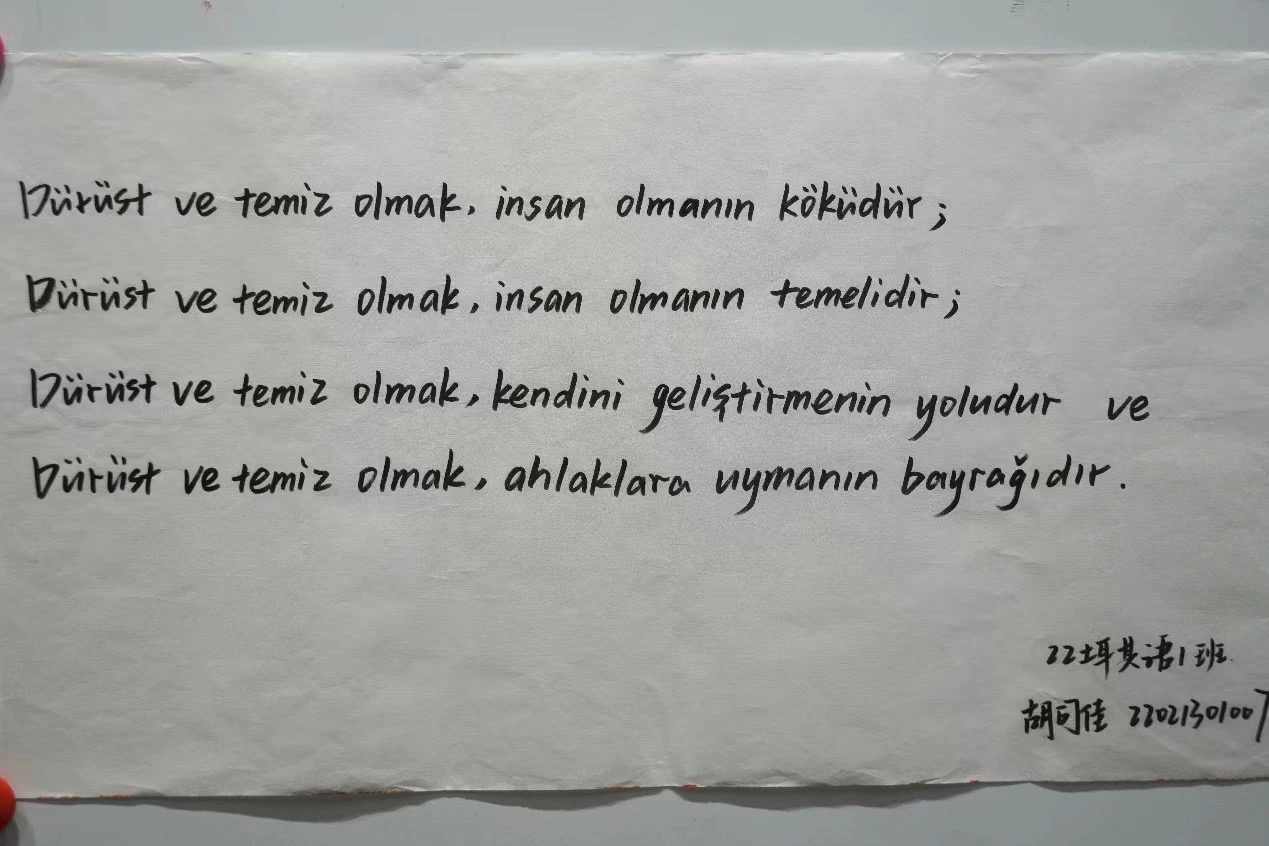 Dürüst ve temiz olmak, insan olmanın köküdür;
Dürüst ve temiz olmak, insan olmanın temelidir;
Dürüst ve temiz olmak, kendini geliştirmenin yoludur ve
Dürüst ve temiz olmak, ahlaklara uymanın bayrağıdır.
22土耳其语1班
胡可佳 22021301007